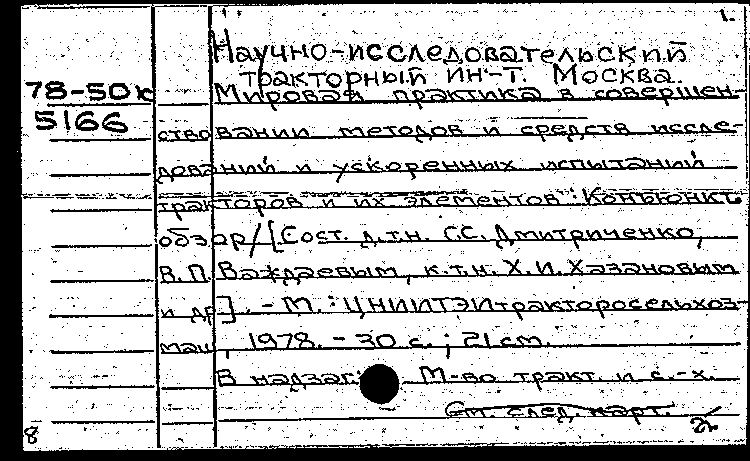 1.
Научно-исследовательский
тракторный ин-т. Москва.
78-50к Мировая практика в совершен-
5166
ствовании методов и средств иссле-
дований и ускоренных испытаний
тракторов и их элементов: Конъюнкт.
обзор/[Сост. д.т.н. С.С. Дмитриченко,
В.П. Важдаевым, к.т.н. Х.И. Хазановым
и др]. - М.: ЦНИИТЭИтракторосельхоз-
маш, 1978. - 30 с.; 21 см.
В надзаг.: М-во тракт. и с.-х.
См. след. карт.
8 2